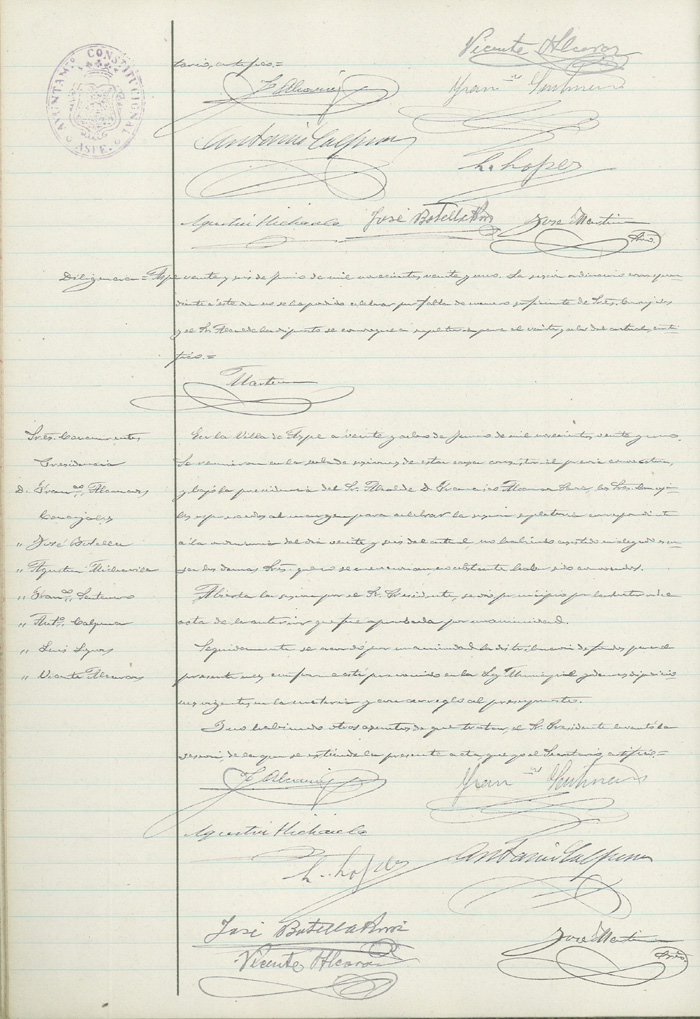 AYUNTAM.to CONSTITUCIONAL ASPE
tario, certifico.=
Vicente Alcaraz
F. Alcaraz
Antonio Calpena
L. Lopez
José Botella
José Martin
Diligencia = Aspe veinte y seis de Junio de mil novecientos veinte y uno. La sesion ordinaria correspon-
diente a este dia no se ha podido celebrar por falta de numero suficiente de Sres. Concejales
y el Sr. Alcalde ha dispuesto se convoque a supletoria para el veinte y ocho del actual, certi-
fico.=
Martin
Sres. Concurrentes
Presidencia
D. Fran.co Alcaraz
Concejales
" José Botella
" Agustin
" Fran.co
" Ant.o Calpena
" Luis
" Vicente Alcaraz
En la Villa de Aspe a veinte y ocho de Junio de mil novecientos veinte y uno.
Se reunieron en la sala de sesiones de estas casas consistoriales previa convocatoria
y bajo la presidencia del Sr. Alcalde D. Francisco Alcaraz los Sres. Conceja-
les expresados al margen para celebrar la sesion supletoria correspondiente
a la ordinaria del dia veinte y seis del actual, no habiendo asistido
los demas Sres. que no haber sido convocados.
Abierta la sesion por el Sr. Presidente, se dio principio por la lectura del
acta de la anterior que fue aprobada por unanimidad.
Seguidamente se acordó por unanimidad la distribucion de fondos para el
presente mes, conforme está prevenido en la Ley Municipal y demas disposicio-
nes vigentes en la materia y con arreglo al presupuesto.
Y no habiendo otros asuntos de que tratar, el Sr. Presidente levantó la
sesion, de la que se extiende la presente acta que yo el Secretario certifico=
F. Alcaraz
L. Lopez
Antonio Calpena
José Botella
Vicente Alcaraz
José Martin